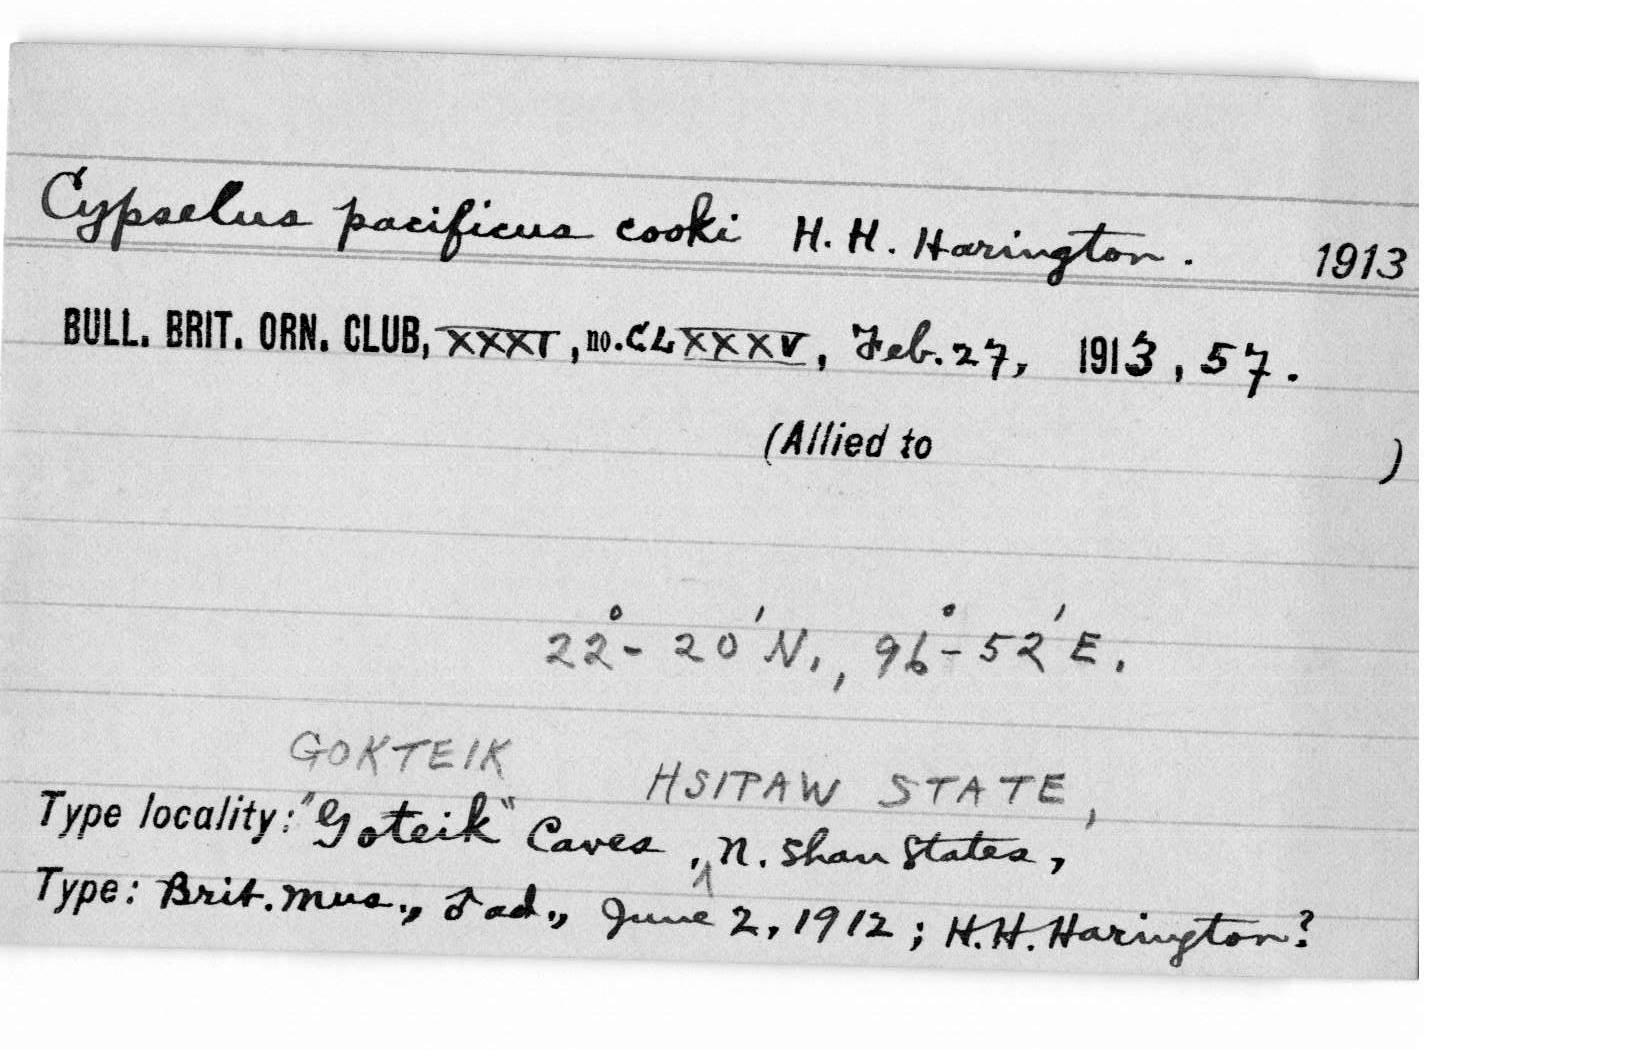 Cypselus pacificus cooki H. H. Harington. 1913
BULL. BRIT. ORN. CLUB, XXXI, no. CLXXXV, Feb. 27, 1913, 57.
(Allied to )
22°- 20' N., 96°- 52' E.
GOKTEIK HSIPAW STATE,
Type locality: "Goteik" Caves, ^ N. Shan States,
Type: Brit. Mus., ♂ ad., June 2, 1912; H. H. Harington?